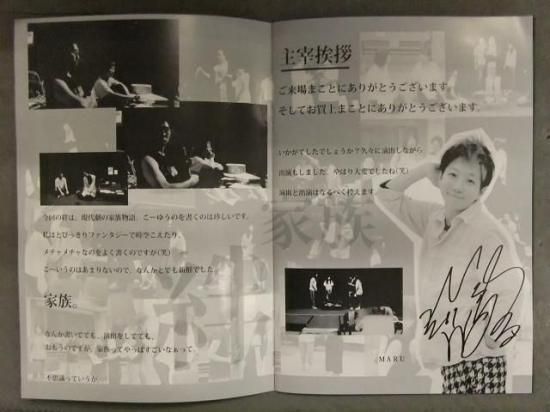 主宰挨拶
ご来場まことにありがとうございます。
そしてお買上まことにありがとうございます。
いかがでしたでしょうか?久々に演出しながら
出演もしました。やはり大変でしたね(笑)
演出と出演はなるべく控えます。
家族
MARU
今回の絆は、現代劇の家族物語。こーゆうのを書くのは珍しいです。
私はとびっきりファンタジーで時空こえたり、
メチャメチャなのをよく書くのですが(笑)
こーいうのはあまりないので、なんかとても新鮮でした。
家族。
なんか書いてても、演出をしてても、
おもうのですが、家族ってやっぱすごいなぁって。
不思議っていうか…
絆